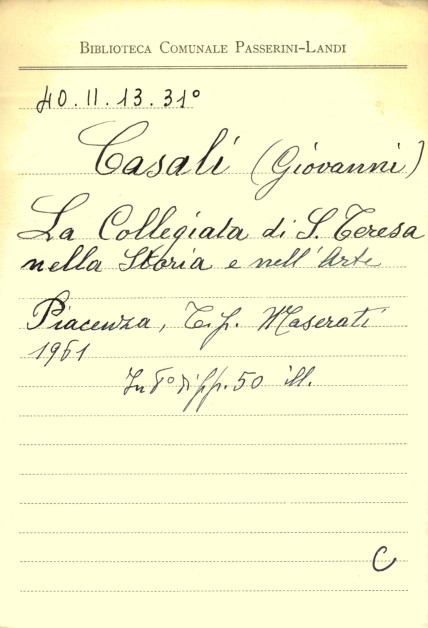 BIBLIOTECA COMUNALE PASSERINI-LANDI
40.II.13.31°
Casali (Giovanni)
La Collegiata di S. Teresa
nella Storia e nell'Arte
Piacenza, Tip. Maserati
1961
In 8° di pp. 50 ill.
C